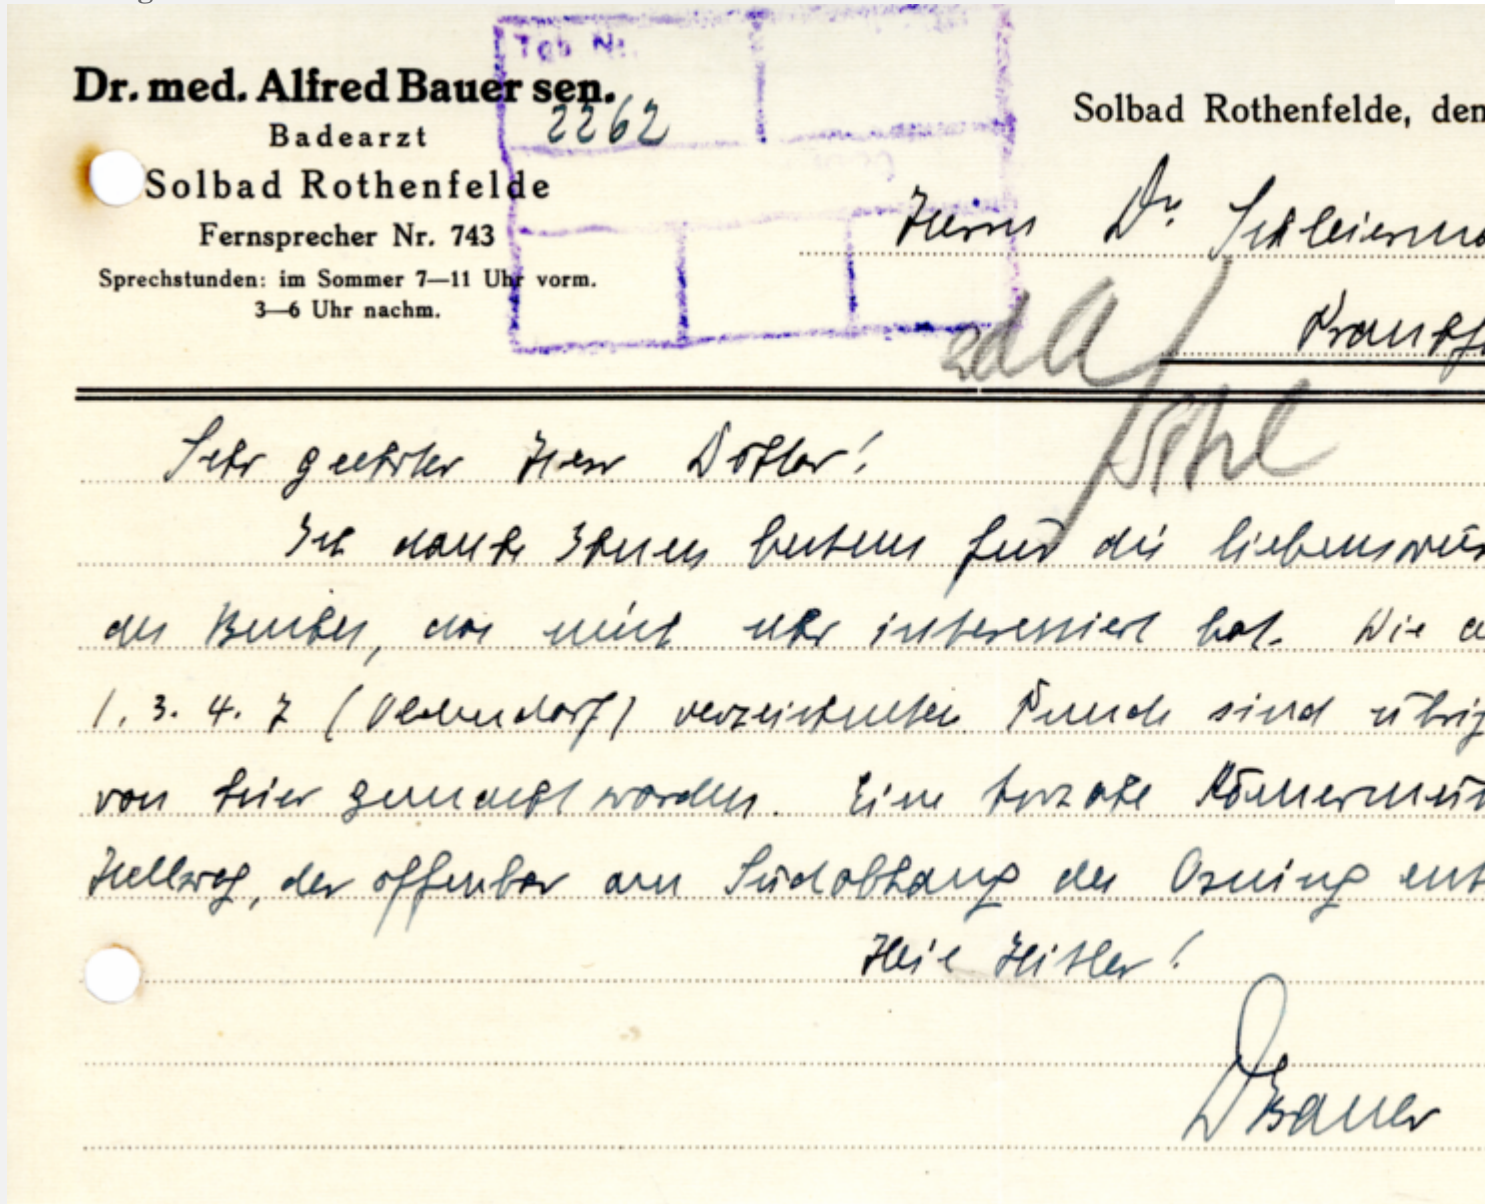 Dr. med. Alfred Bauer sen.
Badearzt
Solbad Rothenfelde
Fernsprecher Nr. 743
Sprechstunden: im Sommer 7—11 Uhr vorm.
3—6 Uhr nachm.
Tgb Nr.
2262
Solbad Rothenfelde, den
Herrn Dr Schleierma
Frankf
zdA
Sehr geehrter Herr Doktor!
Ich danke Ihnen bestens für die liebenswür
des Buches, das mich sehr interessiert hat. Die a
1. 3. 4. 7 ( ) verzeichneten Funde sind übrig
von hier gemacht worden. Eine Römermün
Hellweg, der offenbar am Südabhang des Osning ent
Heil Hitler!
DrBauer